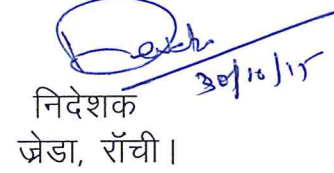 30/10/15
निदेशक
ज्रेडा, रॉची।